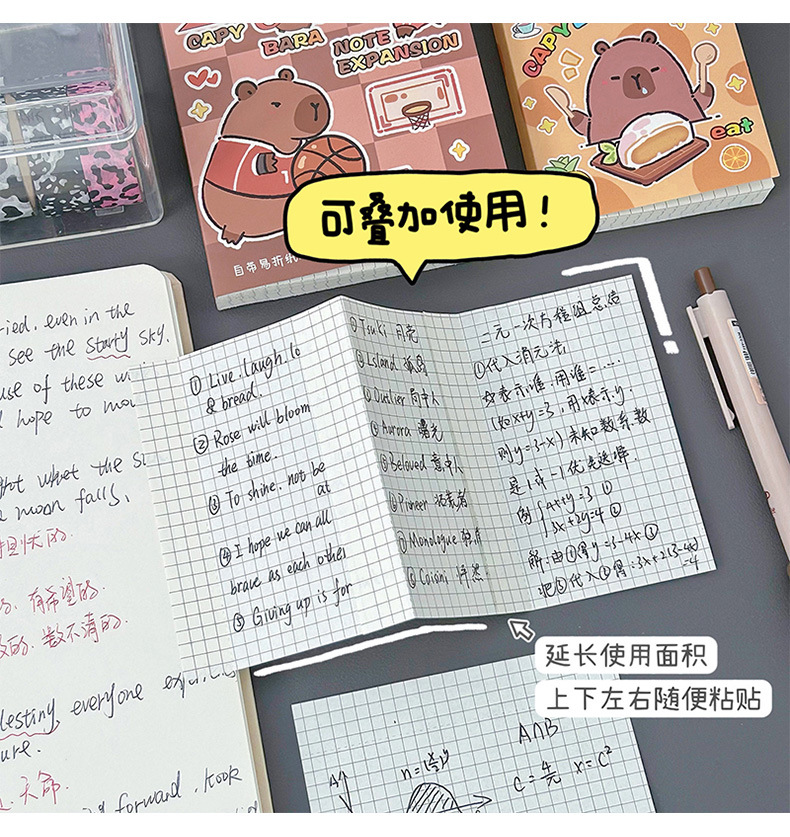 CAPY BARA NOTE
EXPANSION
eat
可叠加使用！
自带易折纸
ried, even in the
see the starry sky.
use of these
hope to
what the
moon falls.
有希望的.
数不清的.
destiny, everyone
ure.
天命
forward, took
① Live, laugh, lo
& bread.
② Rose will bloom
the time.
③ To shine, not be
at
④ I hope we can all
brave as each other
⑤ Giving up is for
① Tsuki 月亮
② Lsland 孤岛
③ Outlier 局中人
④ Aurora 曙光
⑤ Beloved 意中人
⑥ Pioneer 拓荒者
⑦ Monologue 独有
二元一次方程组总结
①代入消元法
表示谁,用谁=....
(如x+y=3,用x表示y.
则y=3-x)未知数系数
是1或-1优先选择.
例{4x+y=3 ①
3x+2y=4 ②
解:由①得y=3-4x ③
把③代入②得:3x+2(3-4x)
=4
延长使用面积
上下左右随便粘贴
A∩B
A
x=C²